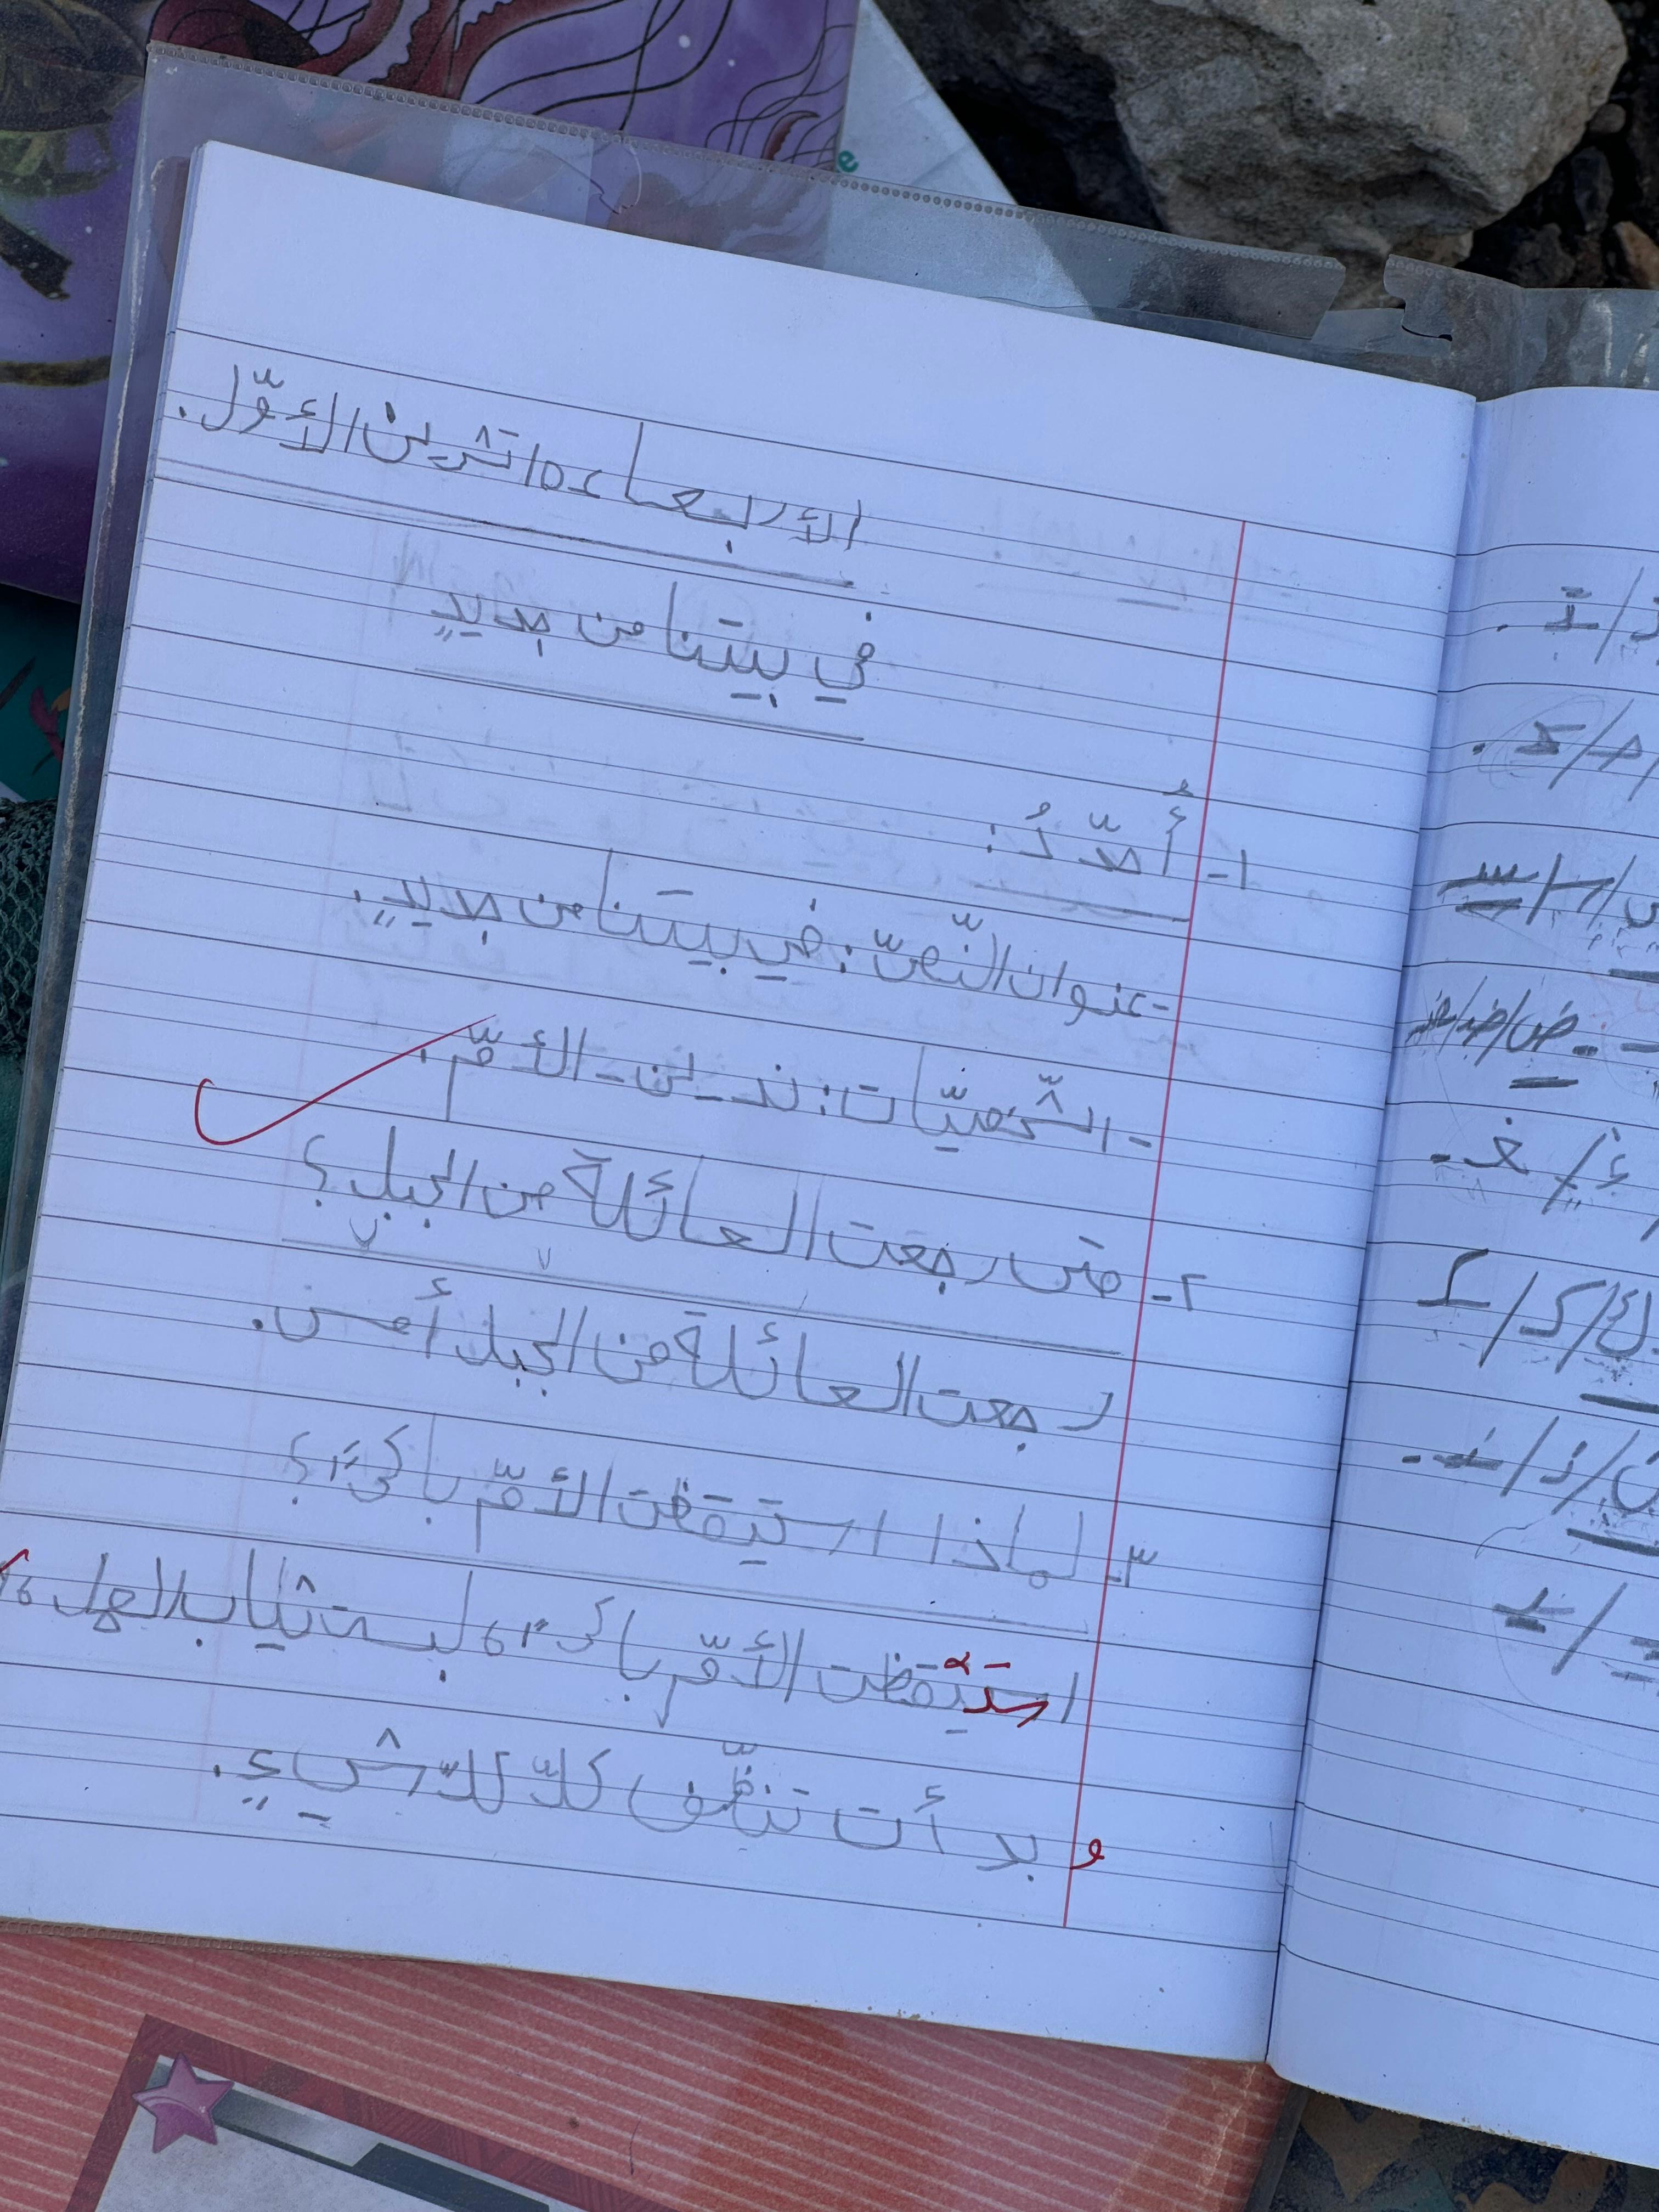 الأربعاء ١٥ تشرين الأوّل.
في بيتنا من جديدٍ
١- أُحدّدُ:
- عنوان النّصّ: في بيتنا من جديدٍ.
- الشّخصيّات: ندين - الأمّ.
٢- متى رجعت العائلة من الجبل؟
رجعت العائلة من الجبل أمس.
٣- لماذا استيقظت الأمّ باكرًا؟
استَيْقظت الأمّ باكرًا، لبست ثياب العمل،
و بدأت تنظّف كلّ شيءٍ.